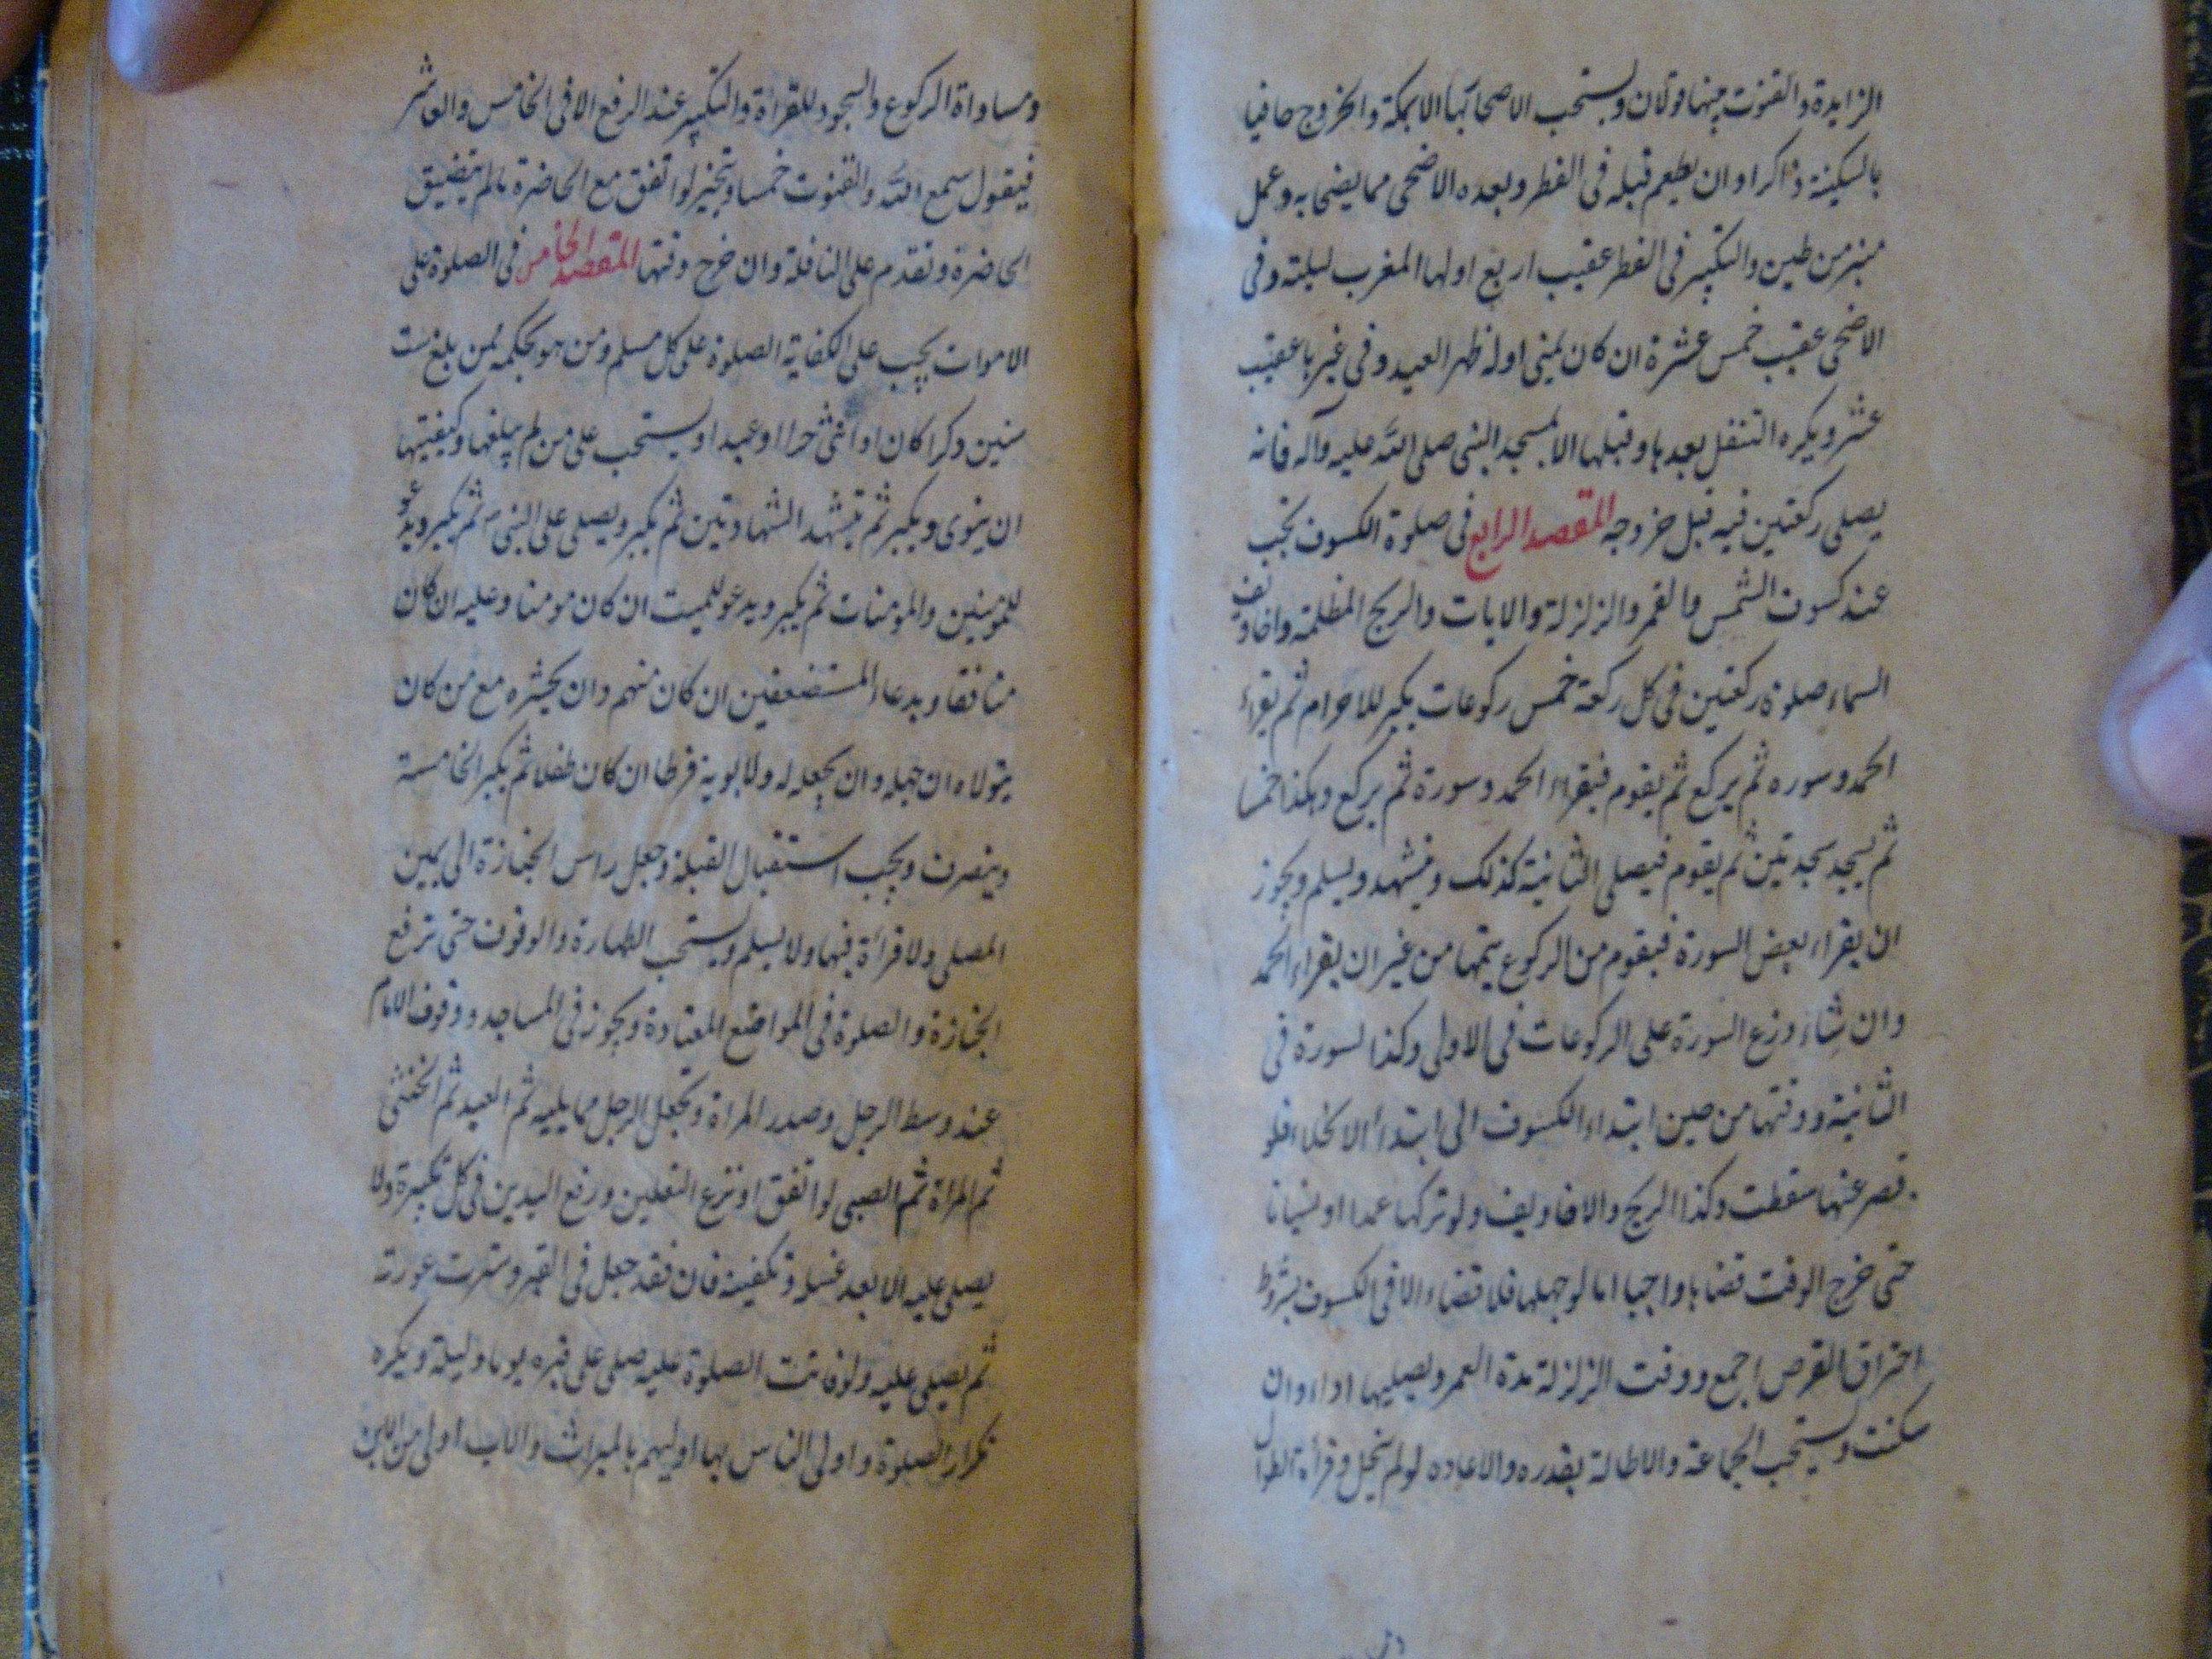 الزايدة والقنوت بينها قولان ويستحب الاصحار بها الا بمكة والخروج حافيا
بالسكينة ذاكرا وان يطعم قبله فى الفطر وبعده الاضحى مما يضحى به وعمل
منبر من طين والتكبير فى الفطر عقيب اربع اولها المغرب ليلته وفى
الاضحى عقيب خمس عشرة ان كان بمنى اوله ظهر العيد وفى غيرها عقيب
عشر ويكره التنفل بعدها وقبلها الا بمسجد النبى صلى الله عليه وآله فانه
يصلى ركعتين فيه قبل خروجه المقصد الرابع فى صلوة الكسوف تجب
عند كسوف الشمس والقمر والزلزلة والايات والريح المظلمة واخاويف
السماء صلوة ركعتين فى كل ركعة خمس ركوعات يكبر للاحرام ثم يقراء
الحمد وسوره ثم يركع ثم يقوم فيقراء الحمد وسورة ثم يركع وهكذا خمسا
ثم يسجد سجدتين ثم يقوم فيصلى الثانية كذلك ويتشهد ويسلم ويجوز
ان يقراء بعض السورة فيقوم من الركوع يتمها من غير ان يقراء الحمد
وان شاء وزع السورة على الركوعات فى الاولى وكذا السورة فى
الثانية ووقتها من حين ابتداء الكسوف الى ابتداء الانجلاء فلو
قصر عنها سقطت وكذا الريح والاخاويف ولو تركها عمدا او نسيانا
حتى خرج الوقت قضاها واجبا اما لو جهلها فلا قضاء الا فى الكسوف بشرط
احتراق القرص اجمع ووقت الزلزلة مدة العمر ويصليها اداء وان
سكنت ويستحب الجماعة والاطالة بقدره والاعاده لو لم ينجل وقرأة الطوال
ومساواة الركوع والسجود للقراءة والتكبير عند الرفع الا فى الخامس والعاشر
فيقول سمع الله والقنوت خمسا وتخير لو اتفق مع الحاضرة مالم يتضيق
الحاضرة وتقدم على النافلة وان خرج وقتها المقصد الخامس فى الصلوة على
الاموات يجب على الكفاية الصلوة على كل مسلم ومن هو بحكمه ممن بلغ ست
سنين ذكرا كان او انثى حرا او عبدا ويستحب على من لم يبلغها وكيفيتها
ان ينوى ويكبر ثم يتشهد الشهادتين ثم يكبر ويصلى على النبى ثم يكبر ويدعو
للمؤمنين والمومنات ثم يكبر ويدعو للميت ان كان مومنا وعليه ان كان
منافقا وبدعاء المستضعفين ان كان منهم وان يحشره مع من كان
يتولاه ان جهله وان يجعله له ولابويه فرطا ان كان طفلا ثم يكبر الخامسة
وينصرف ويجب استقبال القبلة وجعل راس الجنازة الى يمين
المصلى ولا قراءة فيها ولا يسلم ويستحب الطهارة والوقوف حتى ترفع
الجنازة والصلوة فى المواضع المعتادة ويجوز فى المساجد ووقوف الامام
عند وسط الرجل وصدر المراة ويجعل الرجل مما يليه ثم العبد ثم الخنثى
ثم المراة ثم الصبى لو اتفق او نزع النعلين ورفع اليدين فى كل تكبيرة ولا
يصلى عليه الا بعد غسله وتكفينه فان فقد جعل فى القبر وسترت عورته
ثم يصلى عليه ولو فاتت الصلوة عليه صلى على قبره يوما وليلة ويكره
تكرار الصلوة واولى الناس بها اوليهم بالميراث والاب اولى من الابن